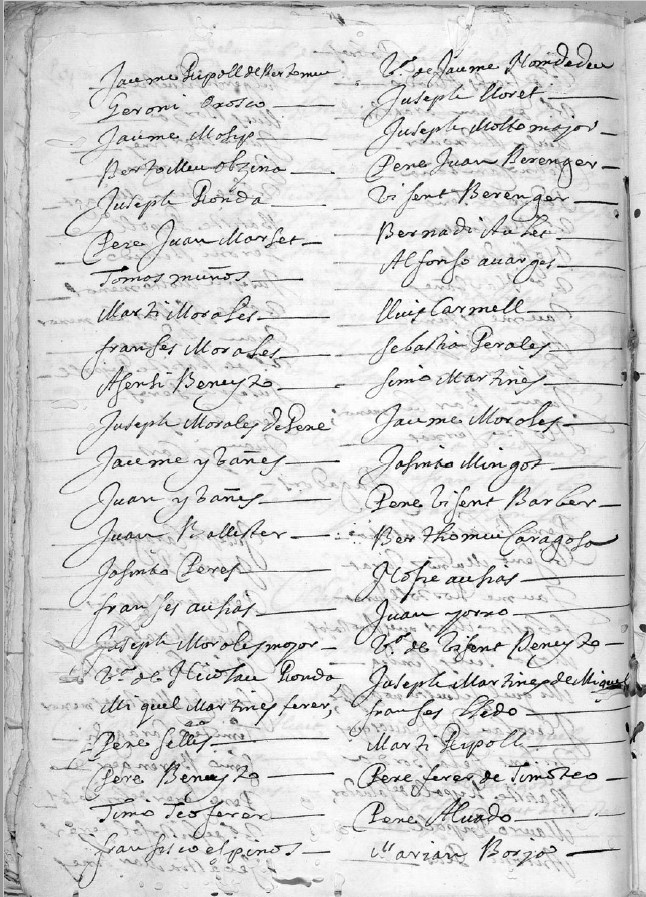 Jaume Ripoll de Bertomeu
Geroni Orosco
Jaume Mosip
Bertomeu
Juseph Ronda
Pere Juan Marset
Tomas muños
Marti Morales
franses Morales
Asensi Beneyto
Juseph Morales de Pere
Jaeme ybañes
Juan ybañes
Juan Ballester
Josinto Peres
franses ausias
Joseph Morales major
V.ª de Nicolau Ronda
Miquel Martines ferer,
Pere selles
Pere Beneyto
Timo Teo ferer
fransisco espinos
V.ª de Jaume Homdedeu
Juseph lloret
Juseph Molto major
Pere Juan Berenger
Visent Berenger
Bernadi
Alfonso
lluis Carmell
Sebastia Perales
Simo Martines
Jaume Morales
Josinto Mingot
Pere Visent Barber
Berthomeu Caragosa
ausias
Juan yorro
V.ª de Visent Beneyto
Joseph Martines de Miquel
franses lledo
Marti Ripoll
Pere ferer de Timoteo
Pere Alvado
Marian